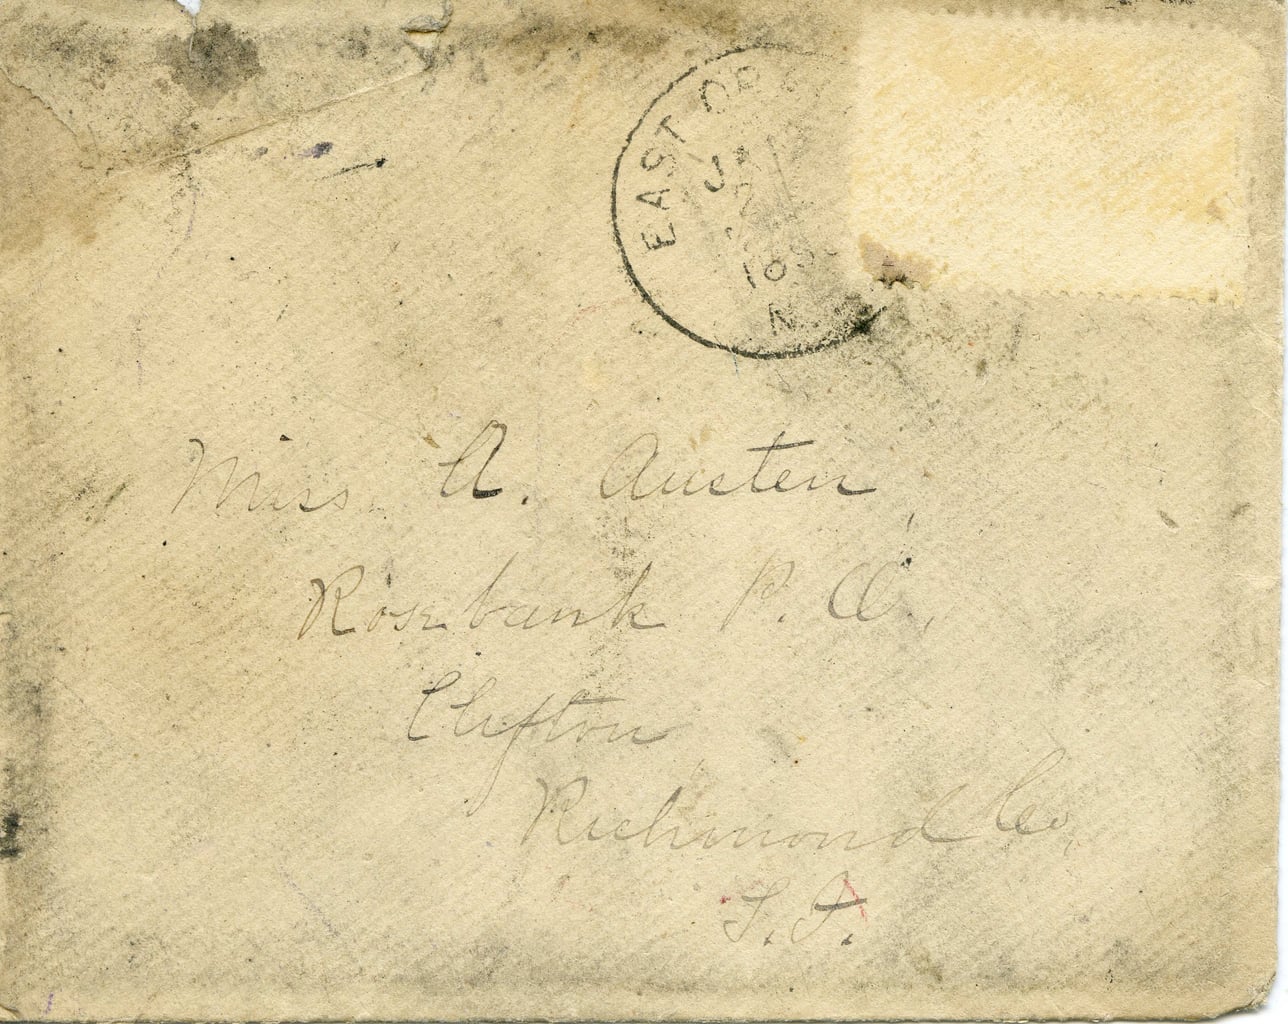 EAST OR
JA
2
189
N.
Miss A. Austen,
Rosebank P. O.,
Clifton
Richmond Co,
S. I.